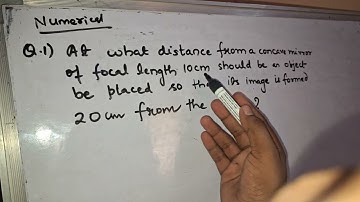 Numerical
Q.1) At what distance from a concave mirror
of focal length 10cm should be an object
be placed so its image is formed
20cm from the ?